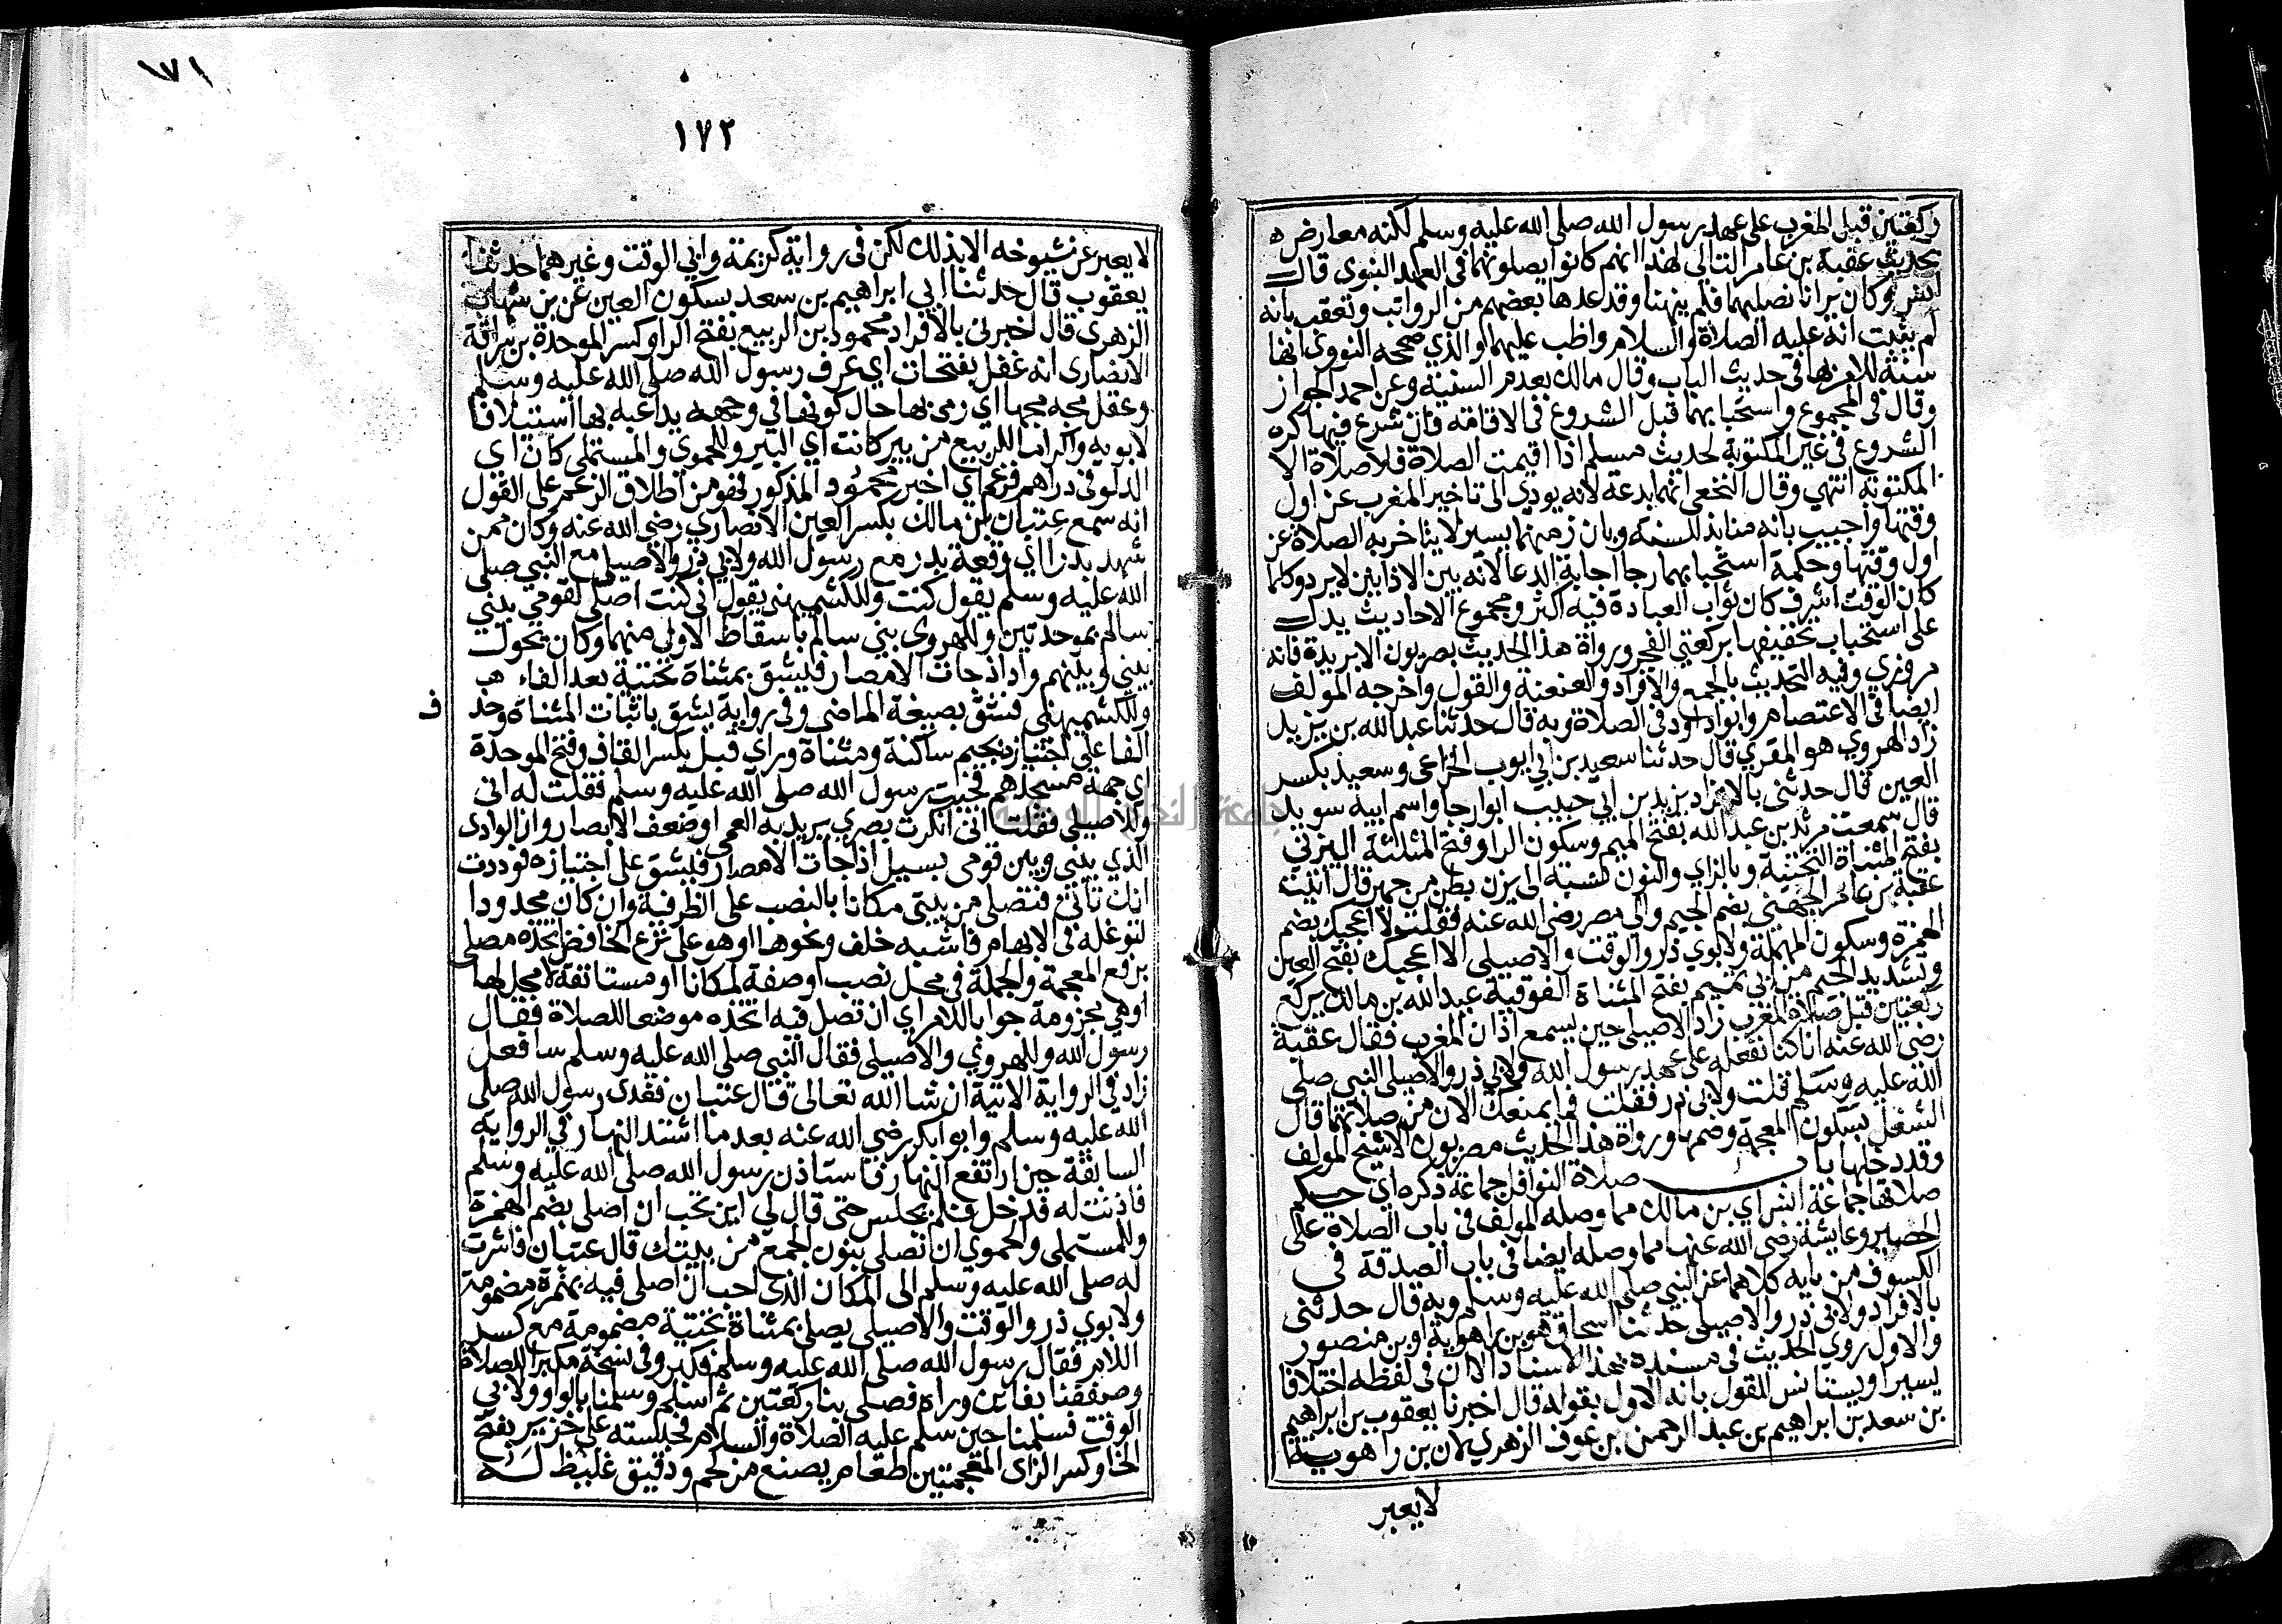 ركعتين قبل المغرب على عهد رسول الله صلى الله عليه وسلم لكنه معارض ه
بحديث عقبة بن عامر التالي لهذا انهم كانوا يصلونهما في العهد النبوي قال
انس وكان يرانا نصليهما فلم ينهنا وقد عدها بعضهم من الرواتب وتعقب بانه
لم يثبت انه عليه الصلاة والسلام واظب عليهما والذي صححه النووي انها
سنة للامر بها في حديث الباب وقال مالك بعدم السنية وعن احمد الجواز
وقال في المجموع واستحبابهما قبل الشروع في الاقامة فان شرع فيها كره
الشروع في غير المكتوبة لحديث مسلم اذا اقيمت الصلاة فلا صلاة الا
المكتوبة انتهي وقال النخعي انها بدعة لانه يودي الى تاخير المغرب عن اول
وقتها واجيب بانه منابذ للسنة وبان زمنهما يسير لا يتاخر به الصلاة عن
اول وقتها وحكمة استحبابهما رجا اجابة الدعا لانه بين الاذانين لا يرد وكلما
كان الوقت اشرف كان ثواب العبادة فيه اكثر ومجموع الاحاديث يدل
على استحباب تخفيفها بركعتي الفجر ورواة هذا الحديث بصريون الا بريدة فانه
مروزي وفيه التحديث بالجمع والافراد والعنعنة والقول واخرجه المولف
ايضا في الاعتصام وابو داود في الصلاة وبه قال حدثنا عبد الله بن يزيد
زاد الهروي هو المقري قال حدثنا سعيد بن ابي ايوب الخزاعي وسعيد بكسر
العين قال حدثني بالافراد يزيد بن ابي حبيب ابو رجا واسم ابيه سويد
قال سمعت مرثد بن عبد الله بفتح الميم وسكون الرا وفتح المثلثة اليزني
بفتح المثناة التحتية وبالزاي والنون نسبة الى يزن بطن من حمير قال اتيت
عقبة بن عامر الجهني بضم الجيم والي مصر رضي الله عنه فقلت الا اعجبك بضم
الهمزة وسكون المهملة ولابوي ذر والوقت والاصيلي الا اعجبك بفتح العين
وتشديد الجيم من ابي تميم بفتح المثناة الفوقية عبد الله بن مالك يركع
ركعتين قبل صلاة المغرب زاد الاصيلي حين يسمع اذان المغرب فقال عقبة
رضي الله عنه انا كنا نفعله على عهد رسول الله ولابي ذر والاصيلي النبي صلى
الله عليه وسلم قلت ولابي ذر فقلت فما يمنعك الان من صلاتهما قال
الشغل بسكون المعجمة وضمها ورواة هذا الحديث مصريون الا شيخ المولف
وقد دخلها باب صلاة النوافل جماعة ذكره اي حكم
صلاتها جماعة انس اي بن مالك مما وصله المولف في باب الصلاة على
الحصير وعايشة رضي الله عنها مما وصله ايضا في باب الصدقة في
الكسوف من بابه كلاهما عن النبي صلى الله عليه وسلم وبه قال حدثني
بالافراد ولابي ذر والاصيلي حدثنا اسحاق هو بن راهوية او بن منصور
والاول روي الحديث في مسنده بهذا الاسناد الا ان في لفظه اختلافا
يسيرا ويستانس للقول بانه الاول بقوله قال اخبرنا يعقوب بن ابراهيم
بن سعد بن ابراهيم بن عبد الرحمن بن عوف الزهري لان بن راهوية
لا يعبر
١٧١
١٧٢
لا يعبر عن شيوخه الا بذلك لكن في رواية كريمة وابي الوقت وغيرهما حدثنا
يعقوب قال حدثنا ابي ابراهيم بن سعد بسكون العين عن بن شهاب
الزهري قال اخبرني بالافراد محمود بن الربيع بفتح الرا وكسر الموحدة بن سراقة
الانصاري انه عقل بفتحات اي عرف رسول الله صلى الله عليه وسلم
وعقل مجه مجها اي رمى بها حال كونها في وجهه يداعبه بها استئلافا
لابويه واكراما للربيع من بير كانت اي البير وللحموي والمستملي كان اي
الدلو في دراهم فزعم اي اخبر محمود المذكور فهو من اطلاق الزعم على القول
انه سمع عتبان بن مالك بكسر العين الانصاري رضي الله عنه وكان ممن
شهد بدرا اي وقعة بدر مع رسول الله ولابي ذر والاصيلي مع النبي صلى
الله عليه وسلم يقول كنت وللكشميهني يقول اني كنت اصلي لقومي ببني
سالم بموحدتين وللهروي بني سالم باسقاط الاولى منهما وكان يحول
بيني وبينهم واد اذا جات الامصار فيشق بمثناة تحتية بعد الفاء
وللكشميهني فشق بصيغة الماضي وفي رواية يشق باثبات المثناة وحذ ف
الفا على اجتيازه بجيم ساكنة ومثناة وزاي قبل بكسر القاف وفتح الموحدة
اي جهة مسجدهم فجيت رسول الله صلى الله عليه وسلم فقلت له اني
وللاصيلي فقلت اني انكرت بصري يريد به العمى او ضعف الابصار وان الوادي
الذي بيني وبين قومي يسيل اذا جات الامصار فيشق على اجتيازه فوددت
انك تاتي فتصلي من بيتي مكانا بالنصب على الظرفية وان كان محدودا
لتوغله في الابهام فاشبه خلف ونحوها او هو على نزع الخافض اتخذه مصلى
برفع المعجمة والجملة في محل نصب او صفة لمكانا او مستانفة لا محل لها
او هي مجزومة جوابا للامر اي ان تصل فيه اتخذه موضعا للصلاة فقال
رسول الله وللهروي والاصيلي فقال النبي صلى الله عليه وسلم سافعل
زاد في الرواية الاتية ان شا الله تعالى قال عتبان فغدى رسول الله صلى
الله عليه وسلم وابو ابكر رضي الله عنه بعد ما اشتد النهار في الرواية
السابقة حين ارتفع النهار فاستاذن رسول الله صلى الله عليه وسلم
فاذنت له فدخل فلم يجلس حتى قال لي اين تحب ان اصلي بضم الهمزة
وللمستملي والحموي ان نصلي بنون الجمع من بيتك قال عتبان فاشرت
له صلى الله عليه وسلم الى المكان الذي احب ان اصلي فيه بهمزة مضمومة
ولابوي ذر والوقت والاصيلي يصلي بمثناة تحتية مضمومة مع كسر
اللام فقال رسول الله صلى الله عليه وسلم فكبر وفي نسخة مكبرا للصلاة
وصففنا بفاين وراه فصلى بنا ركعتين ثم سلم وسلمنا بالواو ولابي
الوقت فسلمنا حين سلم عليه الصلاة والسلام فحبسته على خزير بفتح
الخا وكسر الزاي المعجمتين طعام يصنع من لحم ودقيق غليظ له